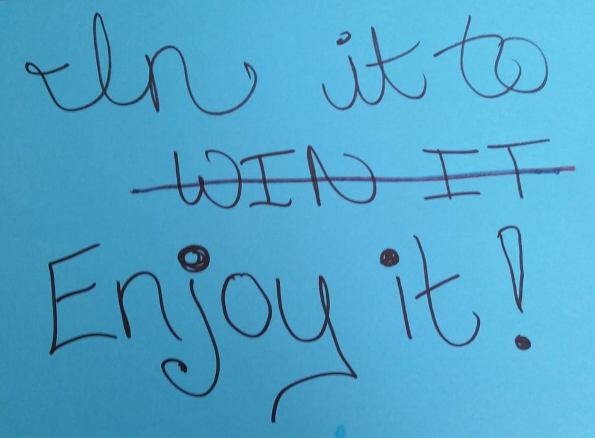 In it to
WIN IT
Enjoy it!